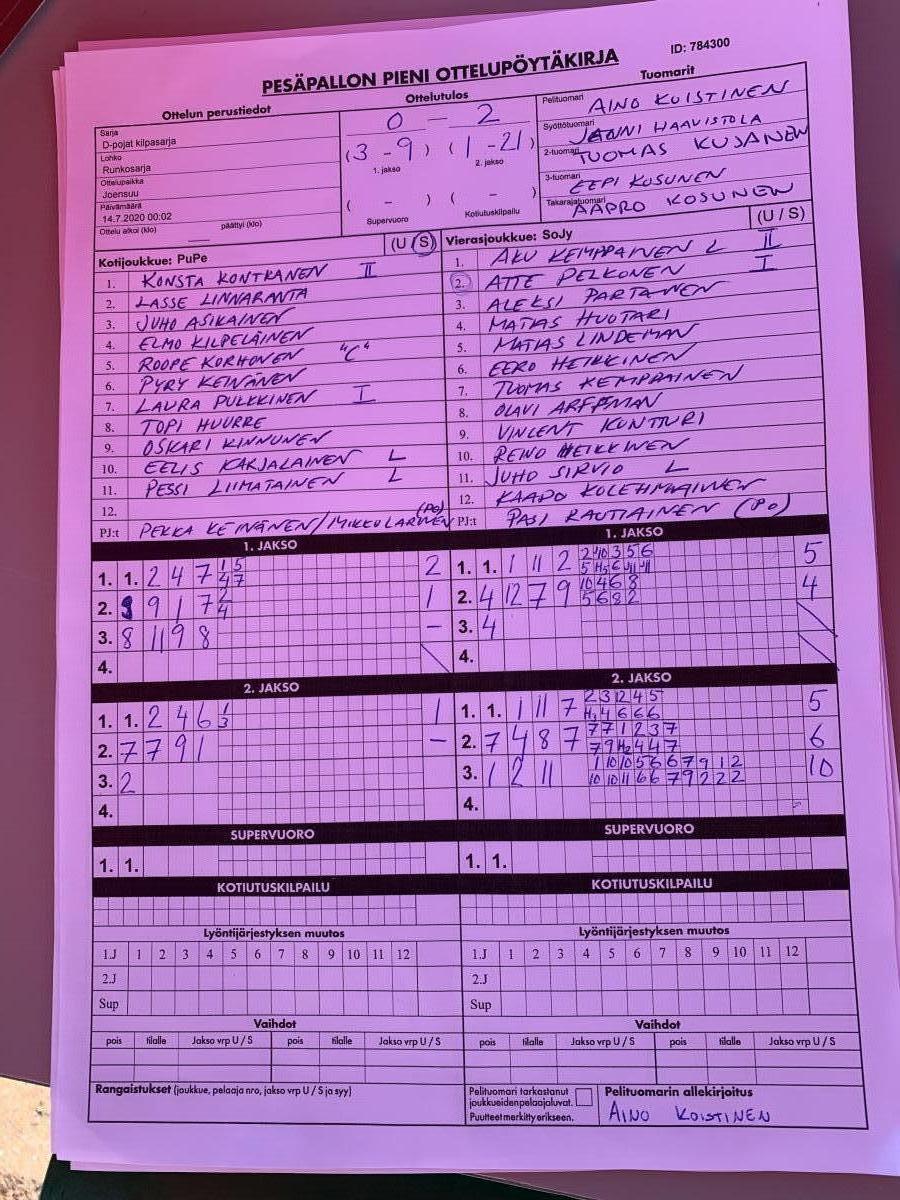 ID: 784300
PESÄPALLON PIENI OTTELUPÖYTÄKIRJA
Ottelun perustiedot
Ottelutulos
Tuomarit
Sarja
D-pojat kilpasarja
Lohko
Runkosarja
Ottelupaikka
Joensuu
Päivämäärä
14.7.2020 00:02
Ottelu alkoi (klo) päättyi (klo)
0 - 2
(3 - 9) (1 - 21)
1. jakso 2. jakso
( - ) ( - )
Supervuoro Kotiutuskilpailu
Pelituomari AINO KOISTINEN
Syöttötuomari JANNI HAAVISTOLA
2-tuomari TUOMAS KUJANEN
3-tuomari EEPI KOSUNEN
Takarajatuomari AAPRO KOSUNEN
Kotijoukkue: PuPe (U / S)
1. KONSTA KONTKANEN II
2. LASSE LINNARANTA
3. JUHO ASIKAINEN
4. ELMO KILPELÄINEN
5. ROOPE KORHONEN "C"
6. PYRY KEINÄNEN
7. LAURA PULKKINEN I
8. TOPI HUURRE
9. OSKARI KINNUNEN
10. EELIS KARJALAINEN L
11. PESSI LIIMATAINEN L
12.
PJ:t PEKKA KEINÄNEN / MIKKO LARINEN (PO)
Vierasjoukkue: SoJy (U / S)
1. AKU KEMPPAINEN L II
2. ATTE PELKONEN I
3. ALEKSI PARTANEN
4. MATIAS HUOTARI
5. MATIAS LINDEMAN
6. EERO HEIKKINEN
7. TUOMAS KEMPPAINEN
8. OLAVI ARFFMAN
9. VINCENT KUNTTURI
10. REINO HEIKKINEN
11. JUHO SIRVIO L
12. KAAPO KOLEHMAINEN
PJ:t PASI RAUTIAINEN (PO)
1. JAKSO
1. 1. 2 4 7 1 5 2
4 7
2. 9 1 7 2 1
4
3. 8 11 9 8 -
4.
1. JAKSO
1. 1. 1 11 2 2 4 10 3 5 6 5
2. 4 12 7 9 10 4 6 8 4
5 6 8 2
3. 4
4.
2. JAKSO
1. 1. 2 4 6 1 1
3
2. 7 7 9 1 -
3. 2
4.
2. JAKSO
1. 1. 1 11 7 2 3 12 4 5 5
H1 4 6 6 6
2. 7 4 8 7 7 7 1 2 3 7 6
7 9 H2 4 4 7
3. 1 2 11 1 10 10 5 6 6 7 9 1 2 10
10 10 11 6 6 7 9 2 2 2
4.
SUPERVUORO
1. 1.
SUPERVUORO
1. 1.
KOTIUTUSKILPAILU
KOTIUTUSKILPAILU
Lyöntijärjestyksen muutos
1.J 1 2 3 4 5 6 7 8 9 10 11 12
2.J
Sup
Lyöntijärjestyksen muutos
1.J 1 2 3 4 5 6 7 8 9 10 11 12
2.J
Sup
Vaihdot
pois tilalle Jakso vrp U / S pois tilalle Jakso vrp U / S
Vaihdot
pois tilalle Jakso vrp U / S pois tilalle Jakso vrp U / S
Rangaistukset (joukkue, pelaaja nro, jakso vrp U / S ja syy)
Pelituomari tarkastanut
joukkueiden pelaajaluvat.
Puutteet merkitty erikseen.
Pelituomarin allekirjoitus
AINO KOISTINEN